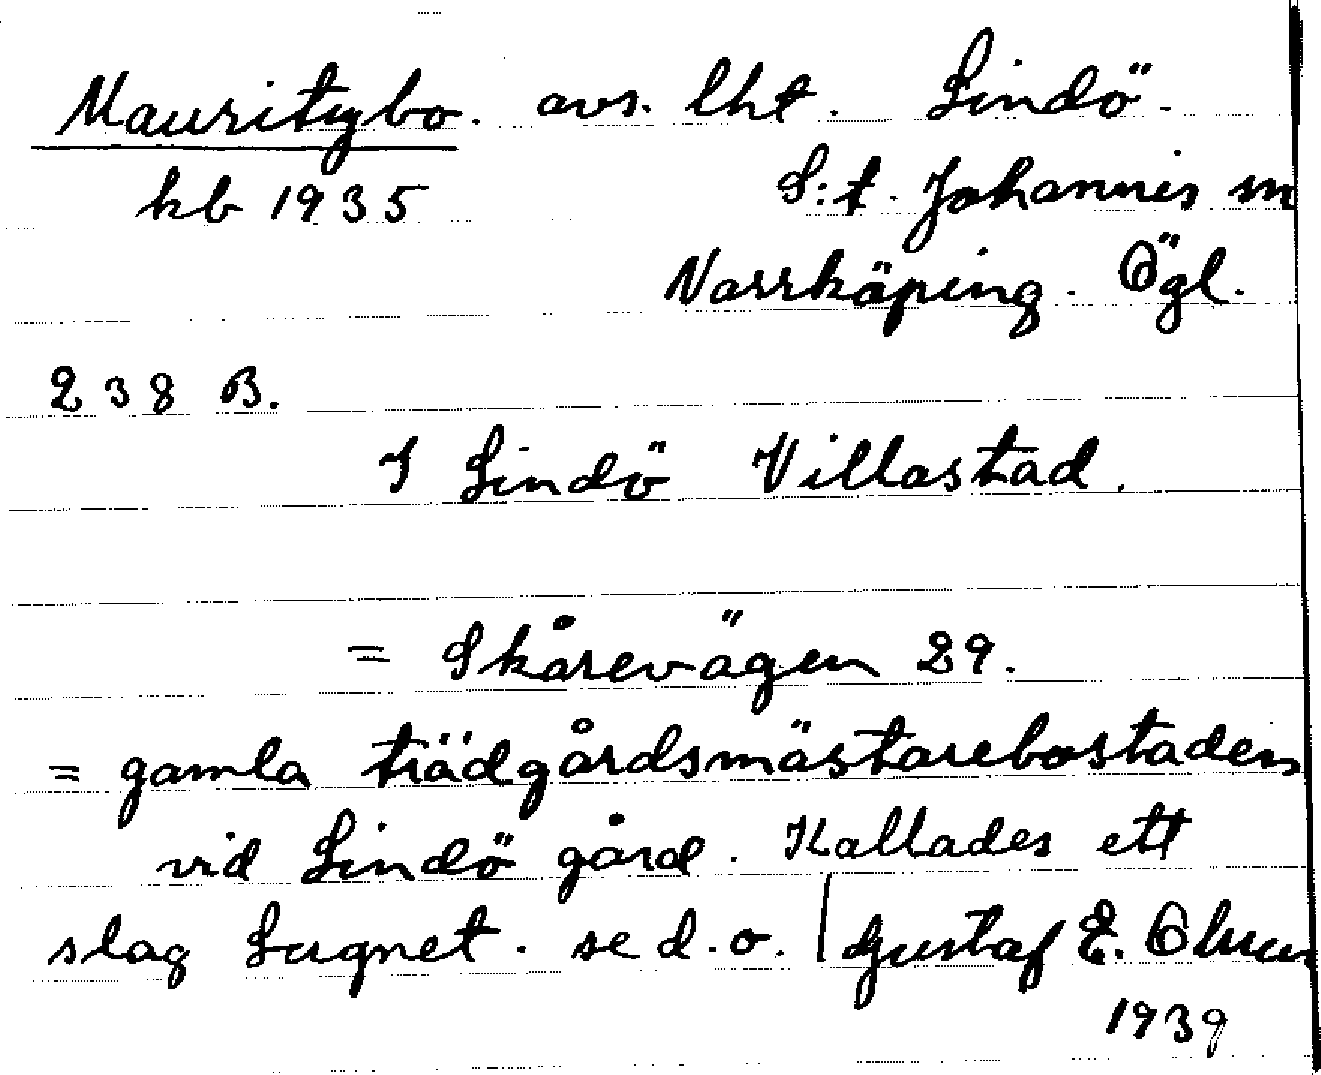 Mauritzbo. avs. lht. Lindö.
kb 1935 S:t. Johannis sn
Norrköping. Ögl.
238 B.
I Lindö Villastad.
= Skårevägen 29.
= gamla trädgårdsmästarebostaden
vid Lindö gård. Kallades ett
slag Lugnet. se d.o. | Gustaf E.
1939